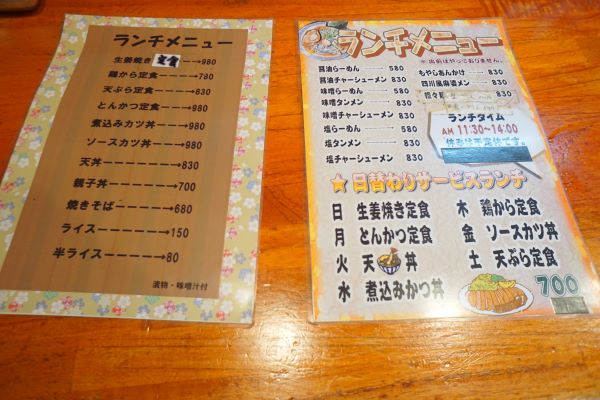 ランチメニュー
生姜焼き定食→980
鶏から定食ーーーー→780
天ぷら定食ーーーー→830
とんかつ定食ーーー→930
煮込みカツ丼ーーー→980
ソースカツ丼ーーー→980
天丼ーーーーー→830
親子丼ーーーー→700
焼きそばーーーー→680
ライスーーーーー→150
半ライスーーーー→80
漬物・味噌汁付
ランチメニュー
※出前はやっておりません。
醤油らーめん 580
醤油チャーシューメン 830
味噌らーめん 580
味噌タンメン 830
味噌チャーシューメン 830
塩らーめん 580
塩タンメン 830
塩チャーシューメン 830
もやしあんかけ 830
四川風麻婆メン 830
ランチタイム
AM 11:30~14:00
★日替わりサービスランチ
日 生姜焼き定食
月 とんかつ定食
火 天丼
水 煮込みかつ丼
木 鶏から定食
金 ソースカツ丼
土 天ぷら定食
700